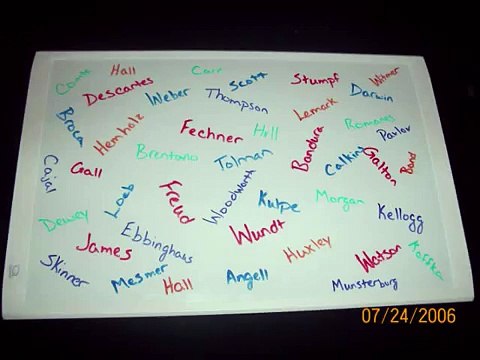 Comte
Hall
Carr
Scott
Stumpf
Witmer
Descartes
Weber
Thompson
Darwin
Broca
Hemholz
Fechner
Hill
Lemark
Romanes
Pavlov
Brentano
Tolman
Bandura
Calkins
Galton
Bond
Cajal
Gall
Loeb
Freud
Woodworth
Kulpe
Morgan
Kellogg
Dewey
Ebbinghaus
Wundt
James
Huxley
Watson
Koffka
Skinner
Mesmer
Hall
Angell
Munsterburg
10
07/24/2006